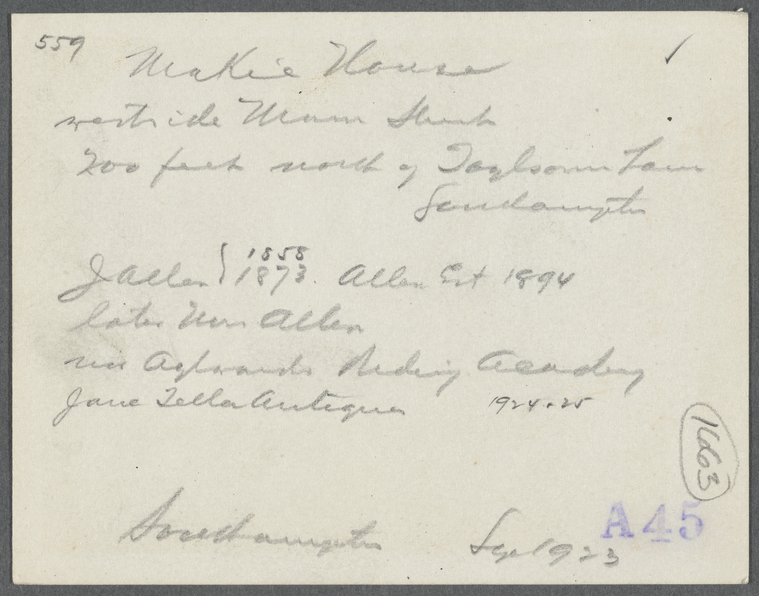 559
House
west side Main Street
200 feet north of Lane
Southampton
J Allen } 1858
1873. Allen Est 1894
later Wm Allen
Riding Academy
Jane Teller Antiques 1924-25
1663
Southampton Sep 1923
A45